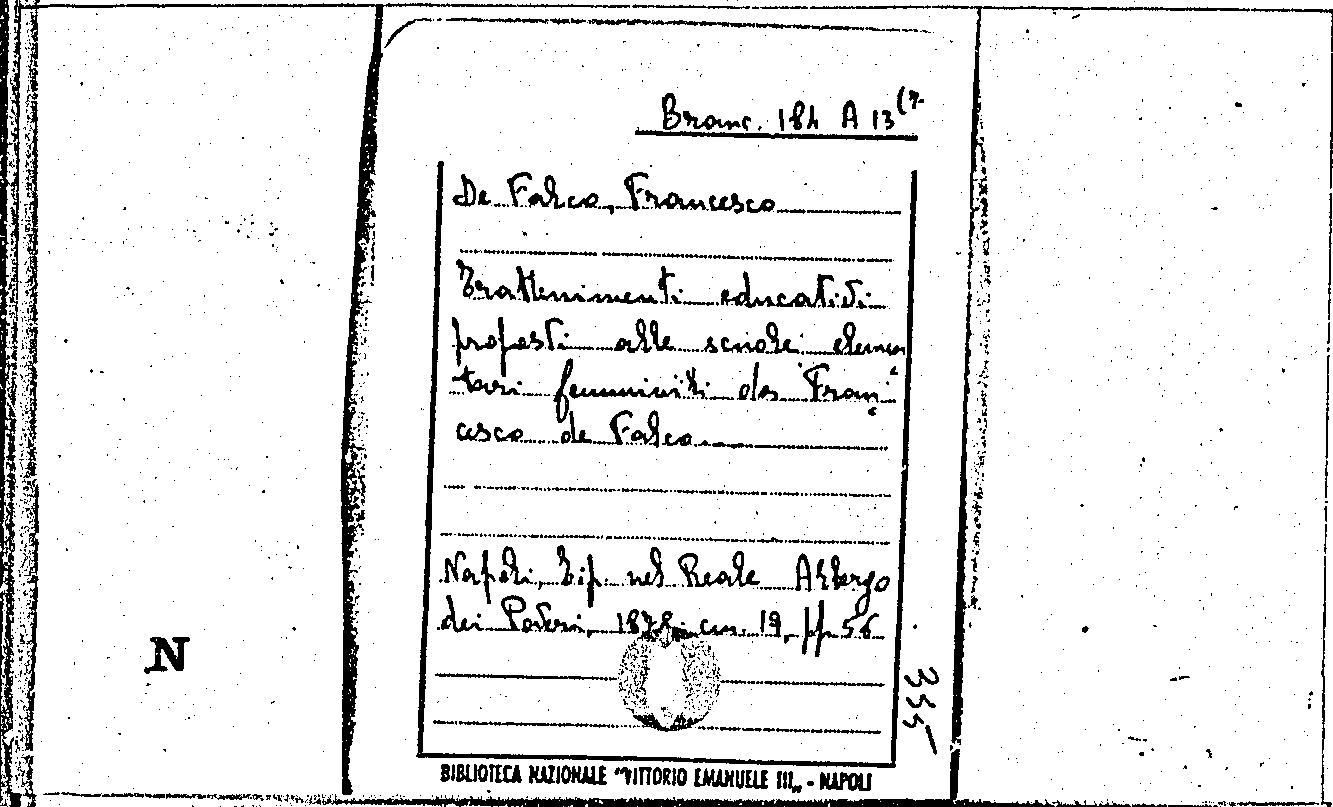 Branc. 184 A 13 (7.
De Falco, Francesco
Trattenimenti educativi
proposti alle scuole elemen
tari femminili da Fran
cesco de Falco
Napoli, Tip. nel Reale Albergo
dei Poveri, 1878. cm. 19, pp. 56
335
N
BIBLIOTECA NAZIONALE "VITTORIO EMANUELE III„ - NAPOLI